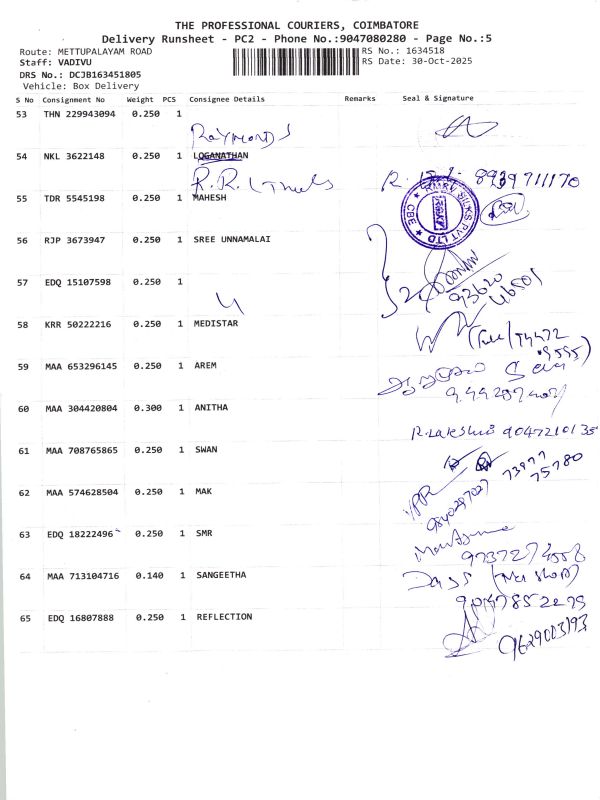 THE PROFESSIONAL COURIERS, COIMBATORE
Delivery Runsheet - PC2 - Phone No.:9047080280 - Page No.:5
Route: METTUPALAYAM ROAD
RS No.: 1634518
Staff: VADIVU
RS Date: 30-Oct-2025
DRS No.: DCJB163451805
Vehicle: Box Delivery
S No Consignment No Weight PCS Consignee Details Remarks Seal & Signature
53 THN 229943094 0.250 1
RAYMONDS
54 NKL 3622148 0.250 1 LOGANATHAN
R.R. 8939711170
55 TDR 5545198 0.250 1 MAHESH
RMKV SILKS PVT LTD
CBE
56 RJP 3673947 0.250 1 SREE UNNAMALAI
57 EDQ 15107598 0.250 1
93620
46501
58 KRR 50222216 0.250 1 MEDISTAR
59 MAA 653296145 0.250 1 AREM
60 MAA 304420804 0.300 1 ANITHA
R.Lakshmi 9047210135
61 MAA 708765865 0.250 1 SWAN
73977
75780
62 MAA 574628504 0.250 1 MAK
63 EDQ 18222496 0.250 1 SMR
64 MAA 713104716 0.140 1 SANGEETHA
65 EDQ 16807888 0.250 1 REFLECTION
9629003193